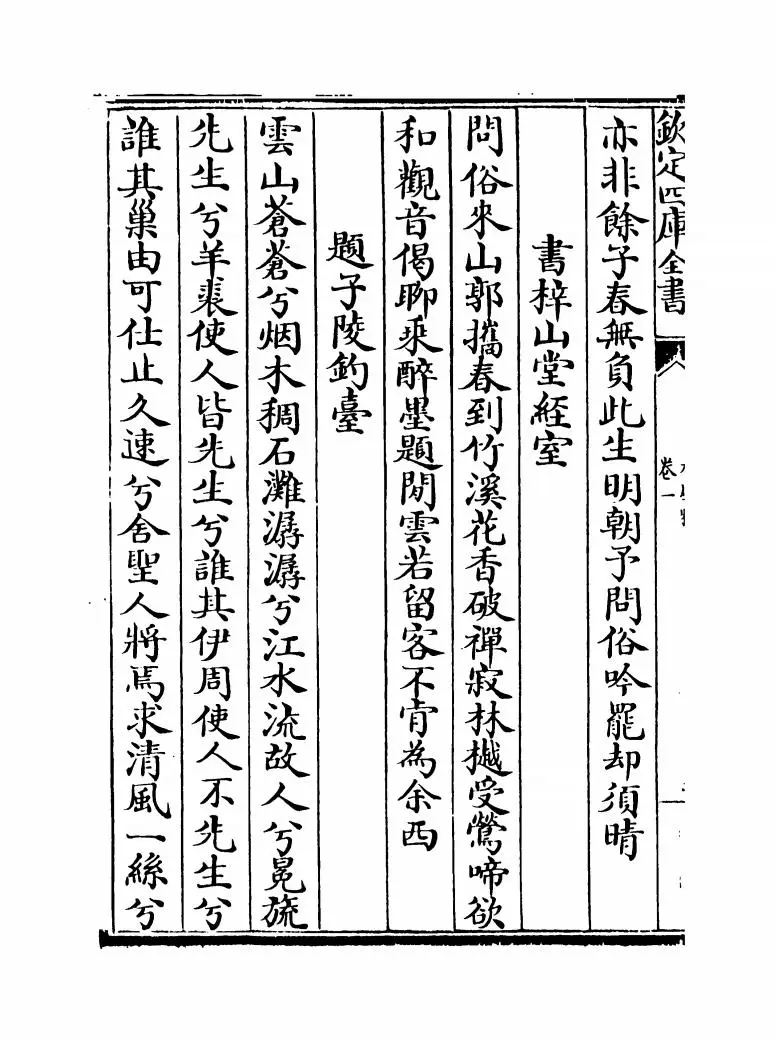 欽定四庫全書
卷一
亦非餘子春無負此生明朝予問俗吟罷却須晴
書梓山堂經室
問俗來山郭攜春到竹溪花香破禪寂林樾受鶯啼欲
和觀音偈聊乘醉墨題閒雲若留客不肯為余西
題子陵釣臺
雲山蒼蒼兮烟木稠石灘潺潺兮江水流故人兮冕旒
先生兮羊裘使人皆先生兮誰其伊周使人不先生兮
誰其巢由可仕止久速兮舍聖人將焉求清風一絲兮